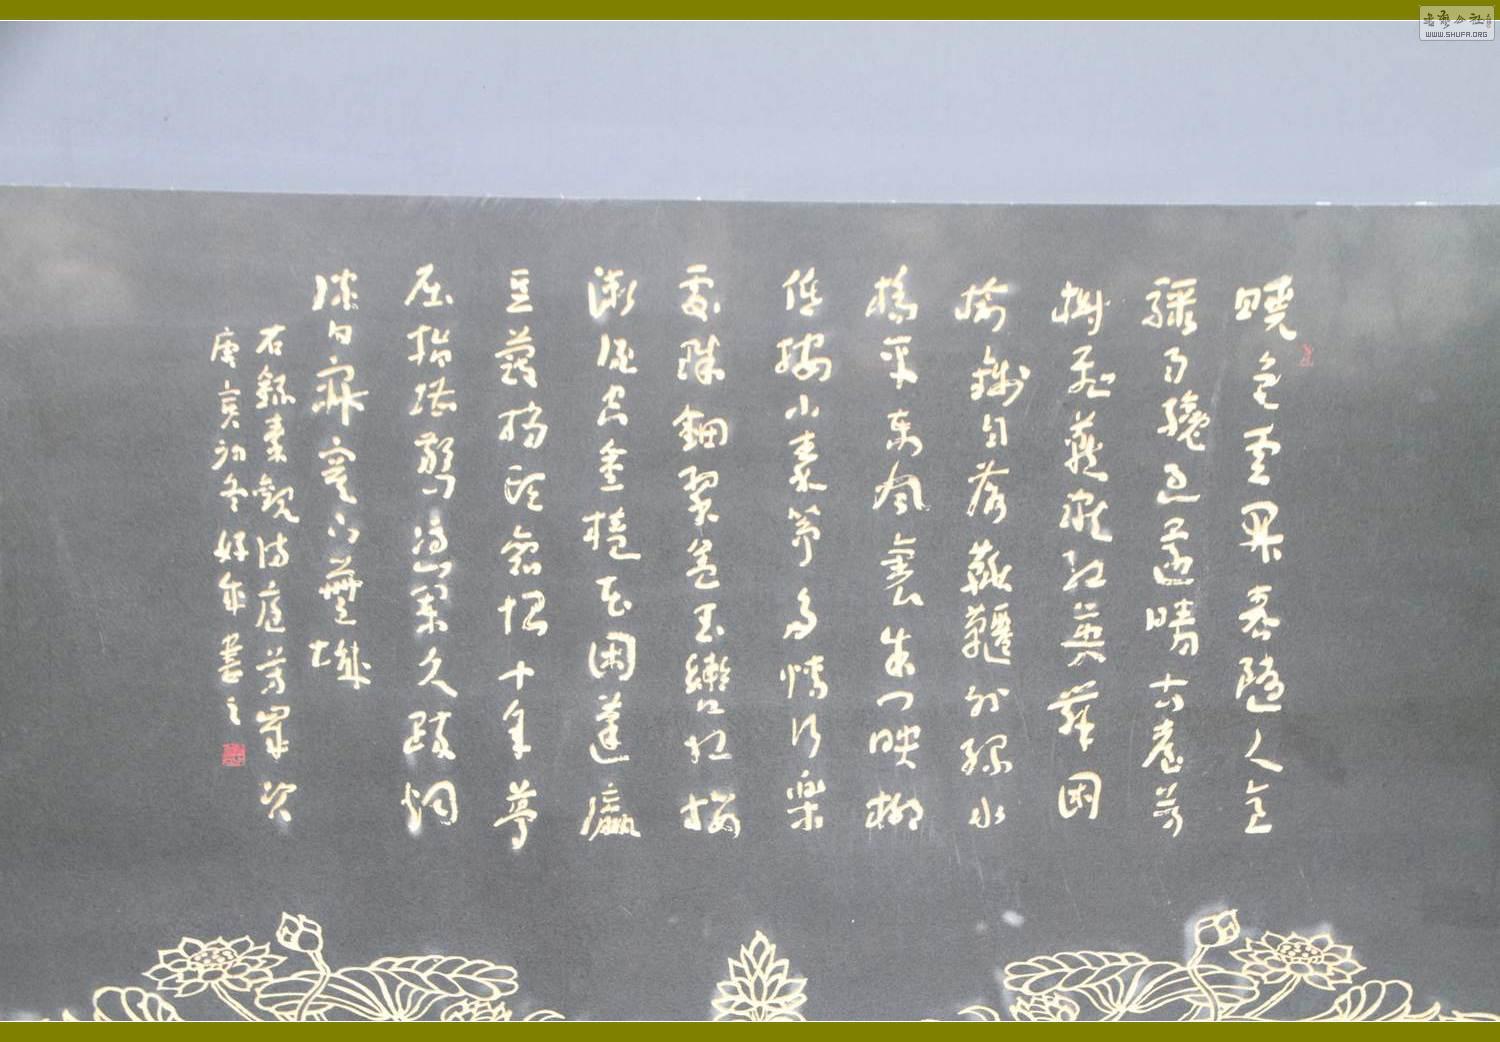 曉色雲開春隨人意
驟雨纔過還晴古臺芳
榭飛燕蹴紅英舞困
榆錢自落鞦韆外綠水
橋平東風裏朱門映柳
低按小秦箏多情行樂
處珠鈿翠蓋玉轡紅纓
漸酒空金榼花困蓬瀛
豆蔻梢頭舊恨十年夢
屈指堪驚憑闌久疏烟
淡日寂寞下蕪城
右錄秦觀滿庭芳
庚寅初冬 書之
WWW.SHUFA.ORG